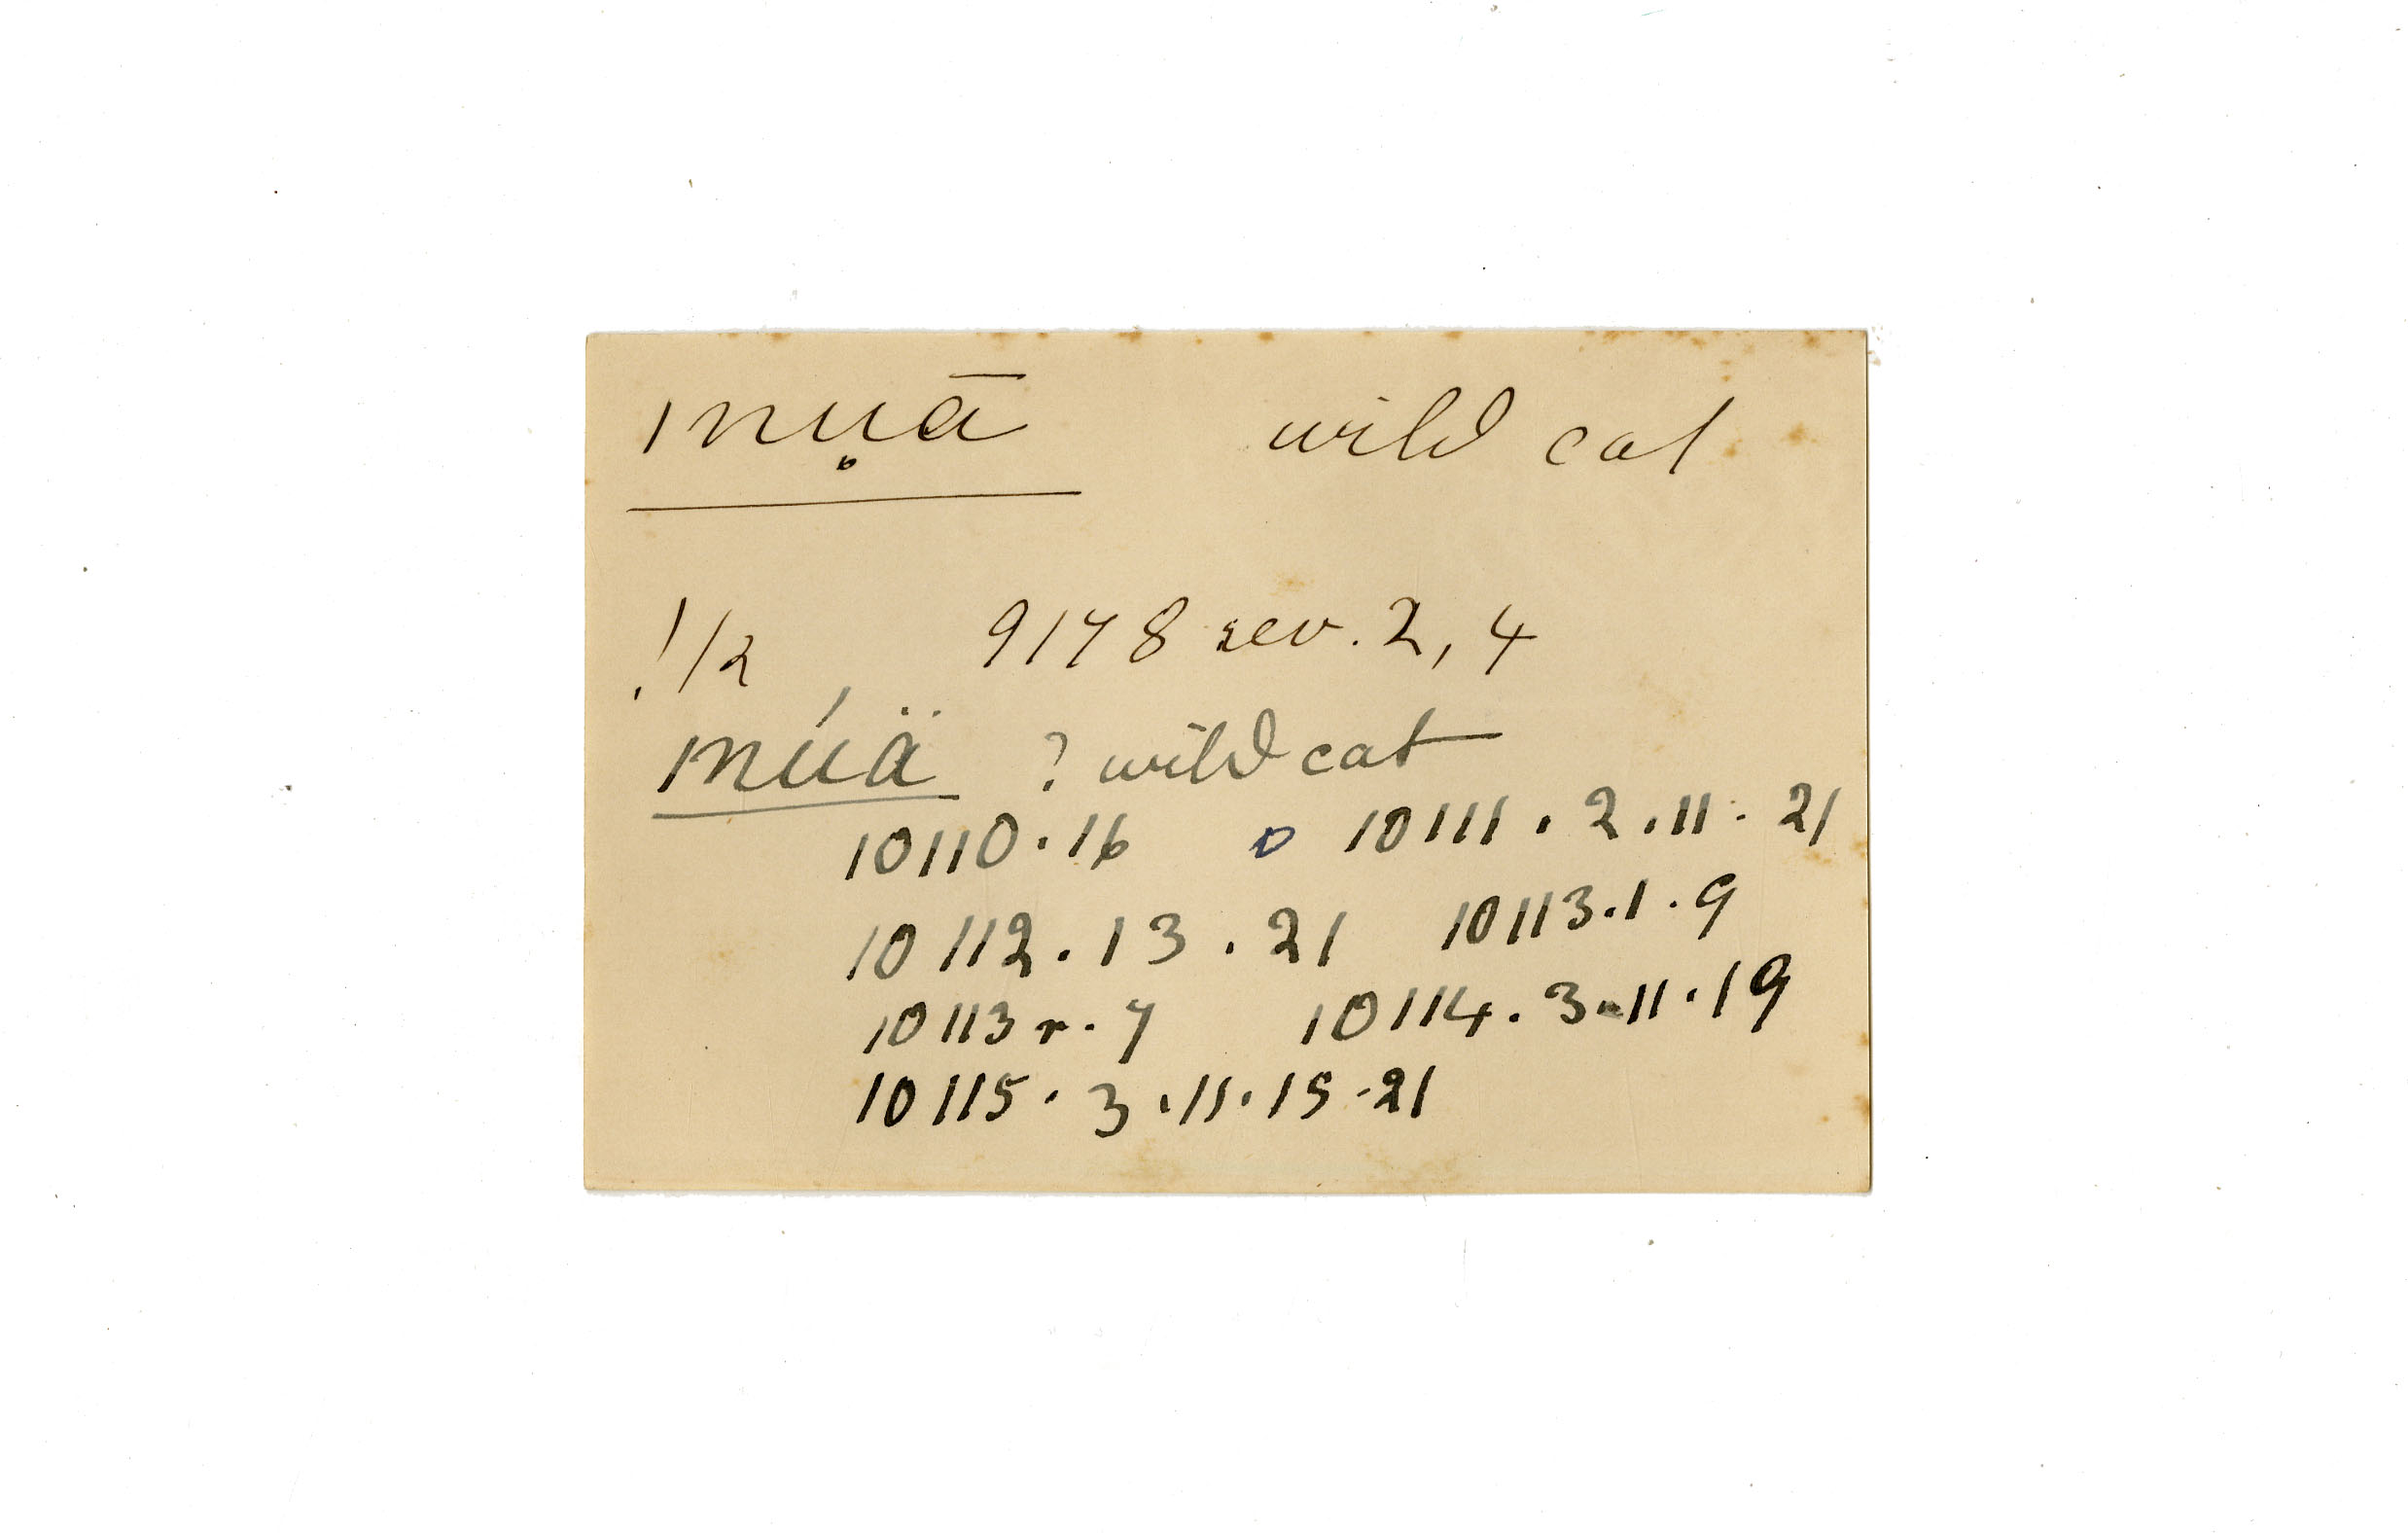 /nụā wild cat
!/2 9178 rev. 2, 4
/núä ? wild cat
10110.16 o 10111.2.11.21
10112.13.21 10113.1.9
10113 r.7 10114.3.11.19
10115.3.11.15.21